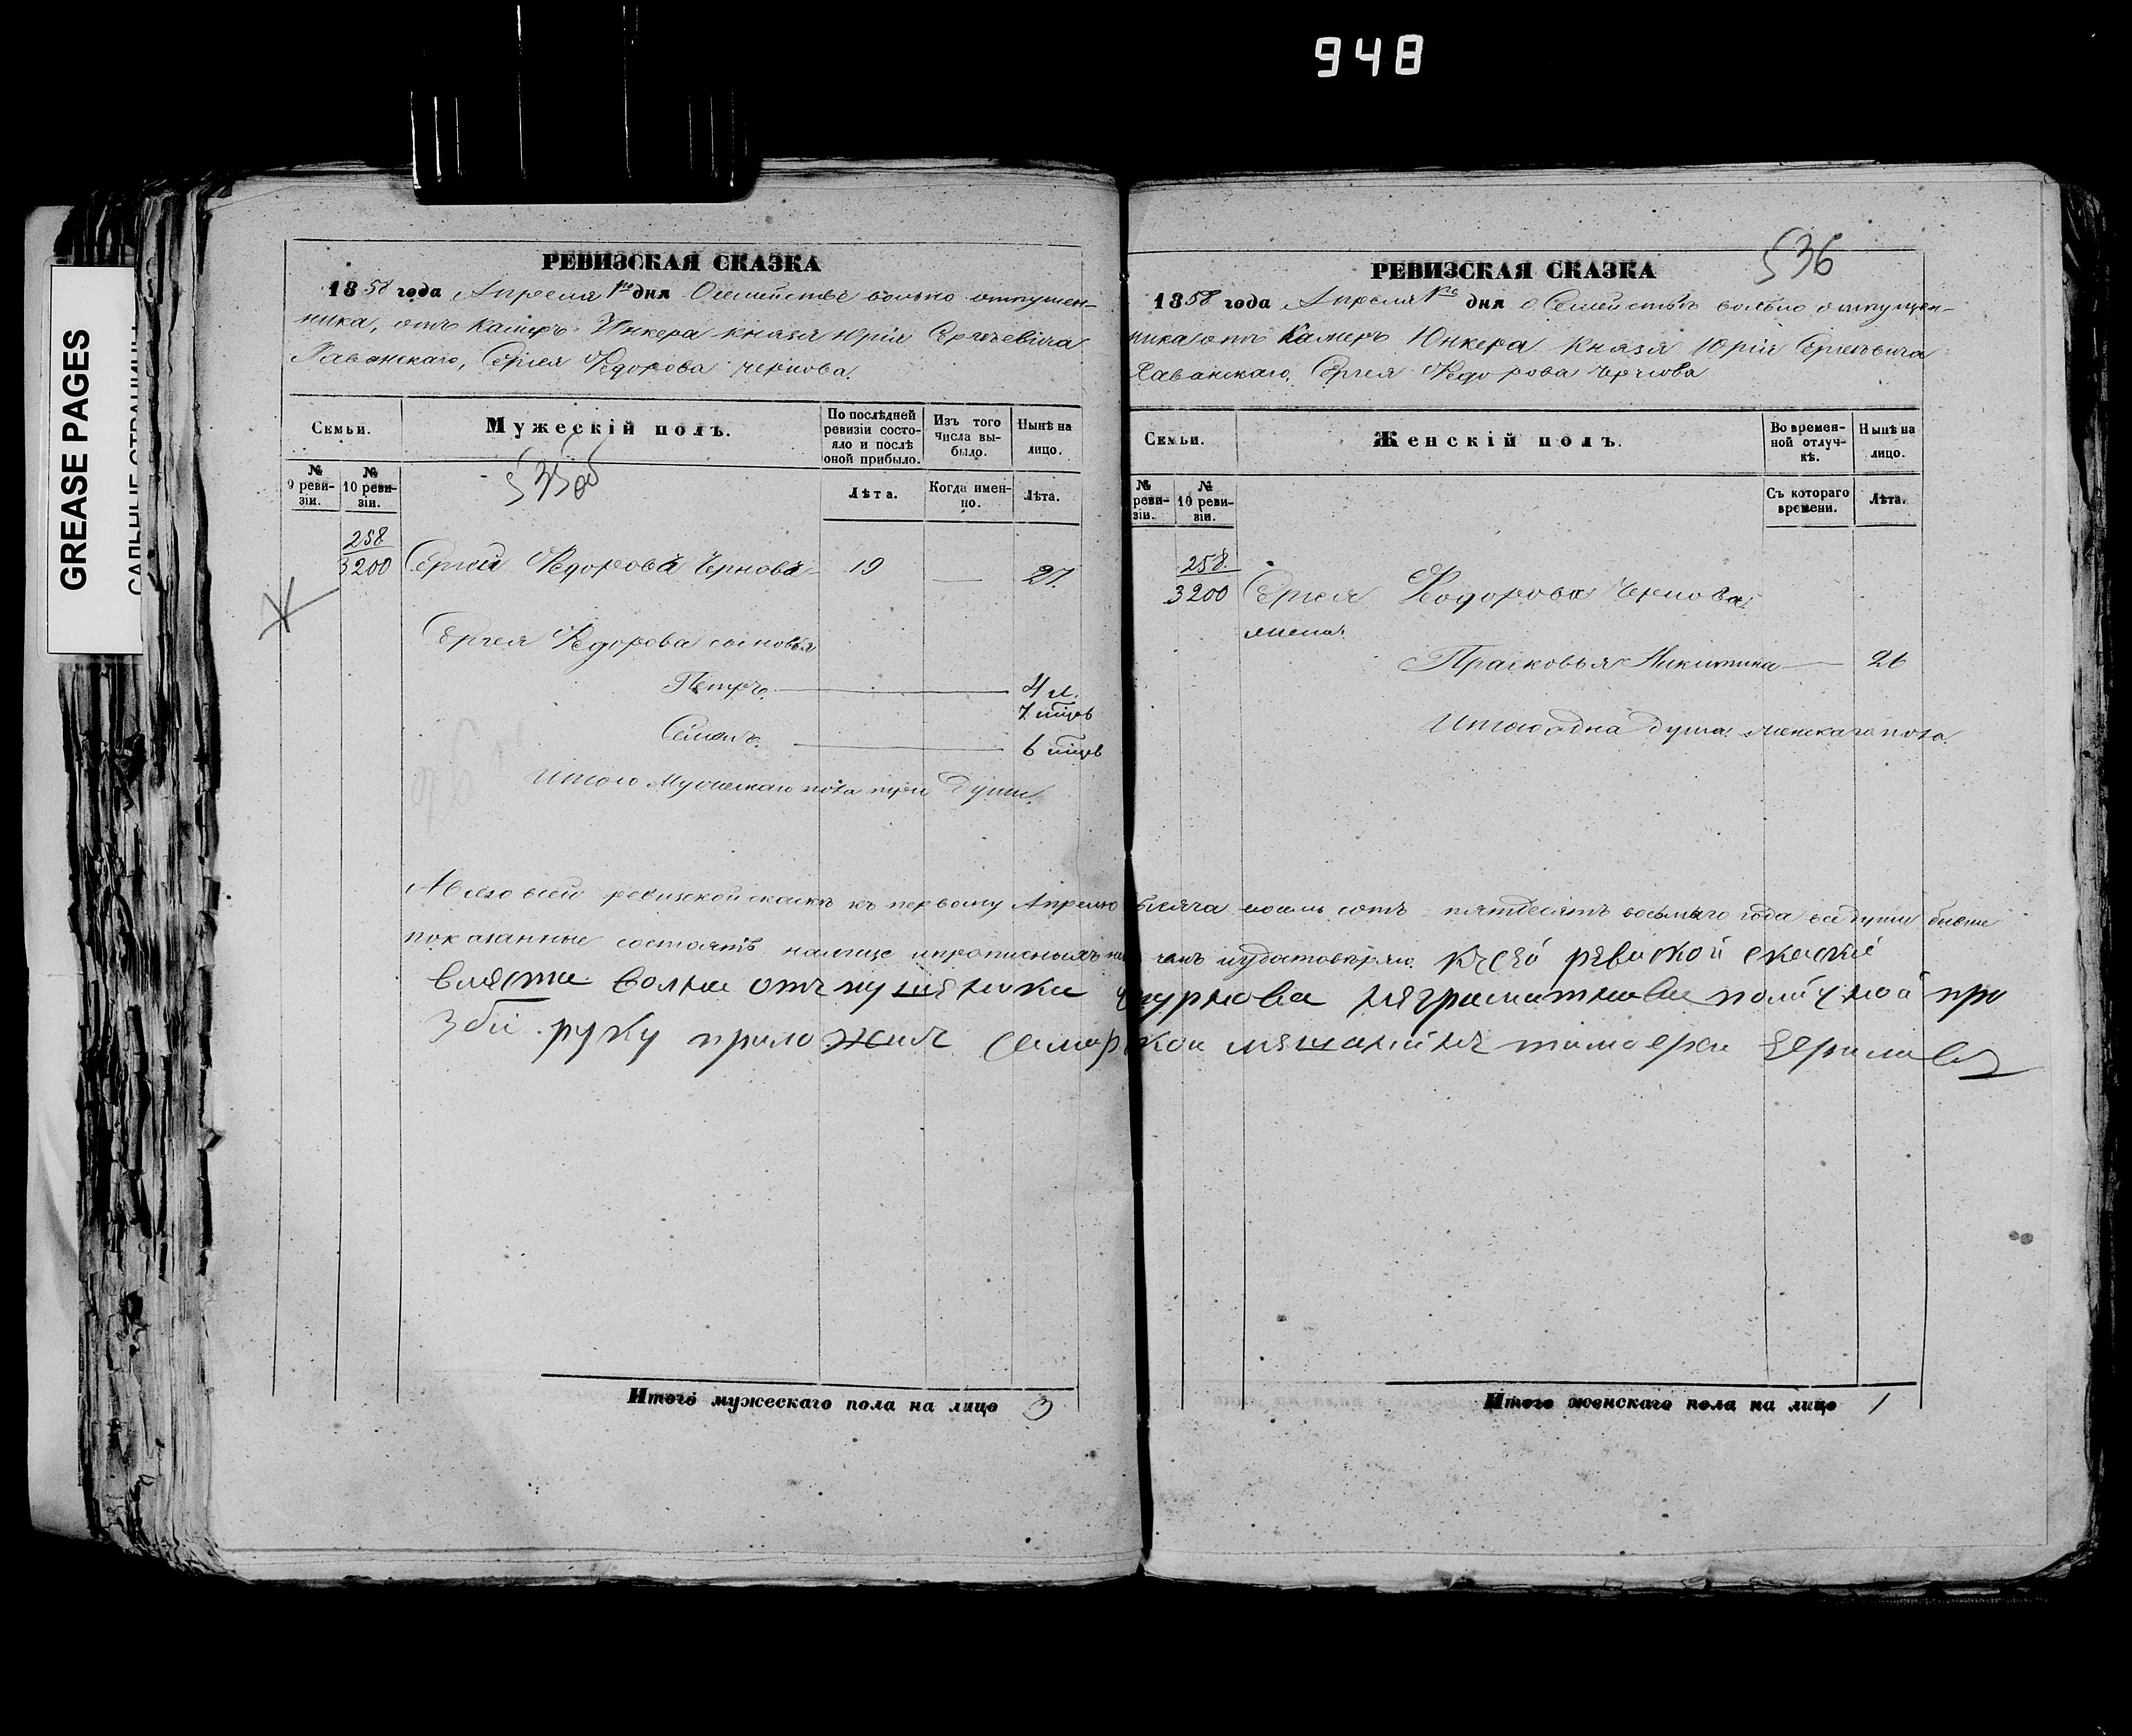 948
GREASE PAGES
РЕВИЗСКАЯ СКАЗКА
1858 года Апреля 1го дня О семействе вольно отпущен-
ника, отъ Камеръ Юнкера князя Юрія Сергеевича
Хаванскаго, Сергея Федорова Чернова.
Семьи.
Мужескій полъ.
По послѣдней ревизіи состо-яло и послѣ оной прибыло.
Изъ того числа вы-было.
Нынѣ на лицо.
№ 9 реви-зіи.
№ 10 реви-зіи.
Лѣта.
Когда имен-но.
Лѣта.
258
3200 Сергей Федоровъ Черновъ 19 — 27.
Сергея Федорова сыновья
Петръ. 4 л.
7 мцов
Семенъ. 6 мцов
Итого Мужескаго пола три души.
Итого мужескаго пола на лицо 3
536
РЕВИЗСКАЯ СКАЗКА
1858 года Апреля 1го дня о Семействѣ вольно отпущен-
ника отъ Камеръ Юнкера Князя Юрія Сергеевича
Хаванскаго, Сергея Федорова Чернова
Семьи.
Женскій полъ.
Во времен-ной отлуч-кѣ.
Нынѣ на лицо.
№ реви-зіи.
№ 10 реви-зіи.
Съ котораго времени.
Лѣта.
258.
3200 Сергея Федорова Чернова
жена.
Прасковья Никитина — 26
Итого одна душа женскаго пола.
ревизской сказкѣ къ первому Апрелю тысяча восемь сотъ пятдесятъ восьмаго года все души
показанные состоятъ налице къ сей ревиской скаски
вместа волна отъпушеника чурнова неграматнава по ličной про
збй руку приложилъ Самарской мешанинъ
Итого женскаго пола на лицо 1